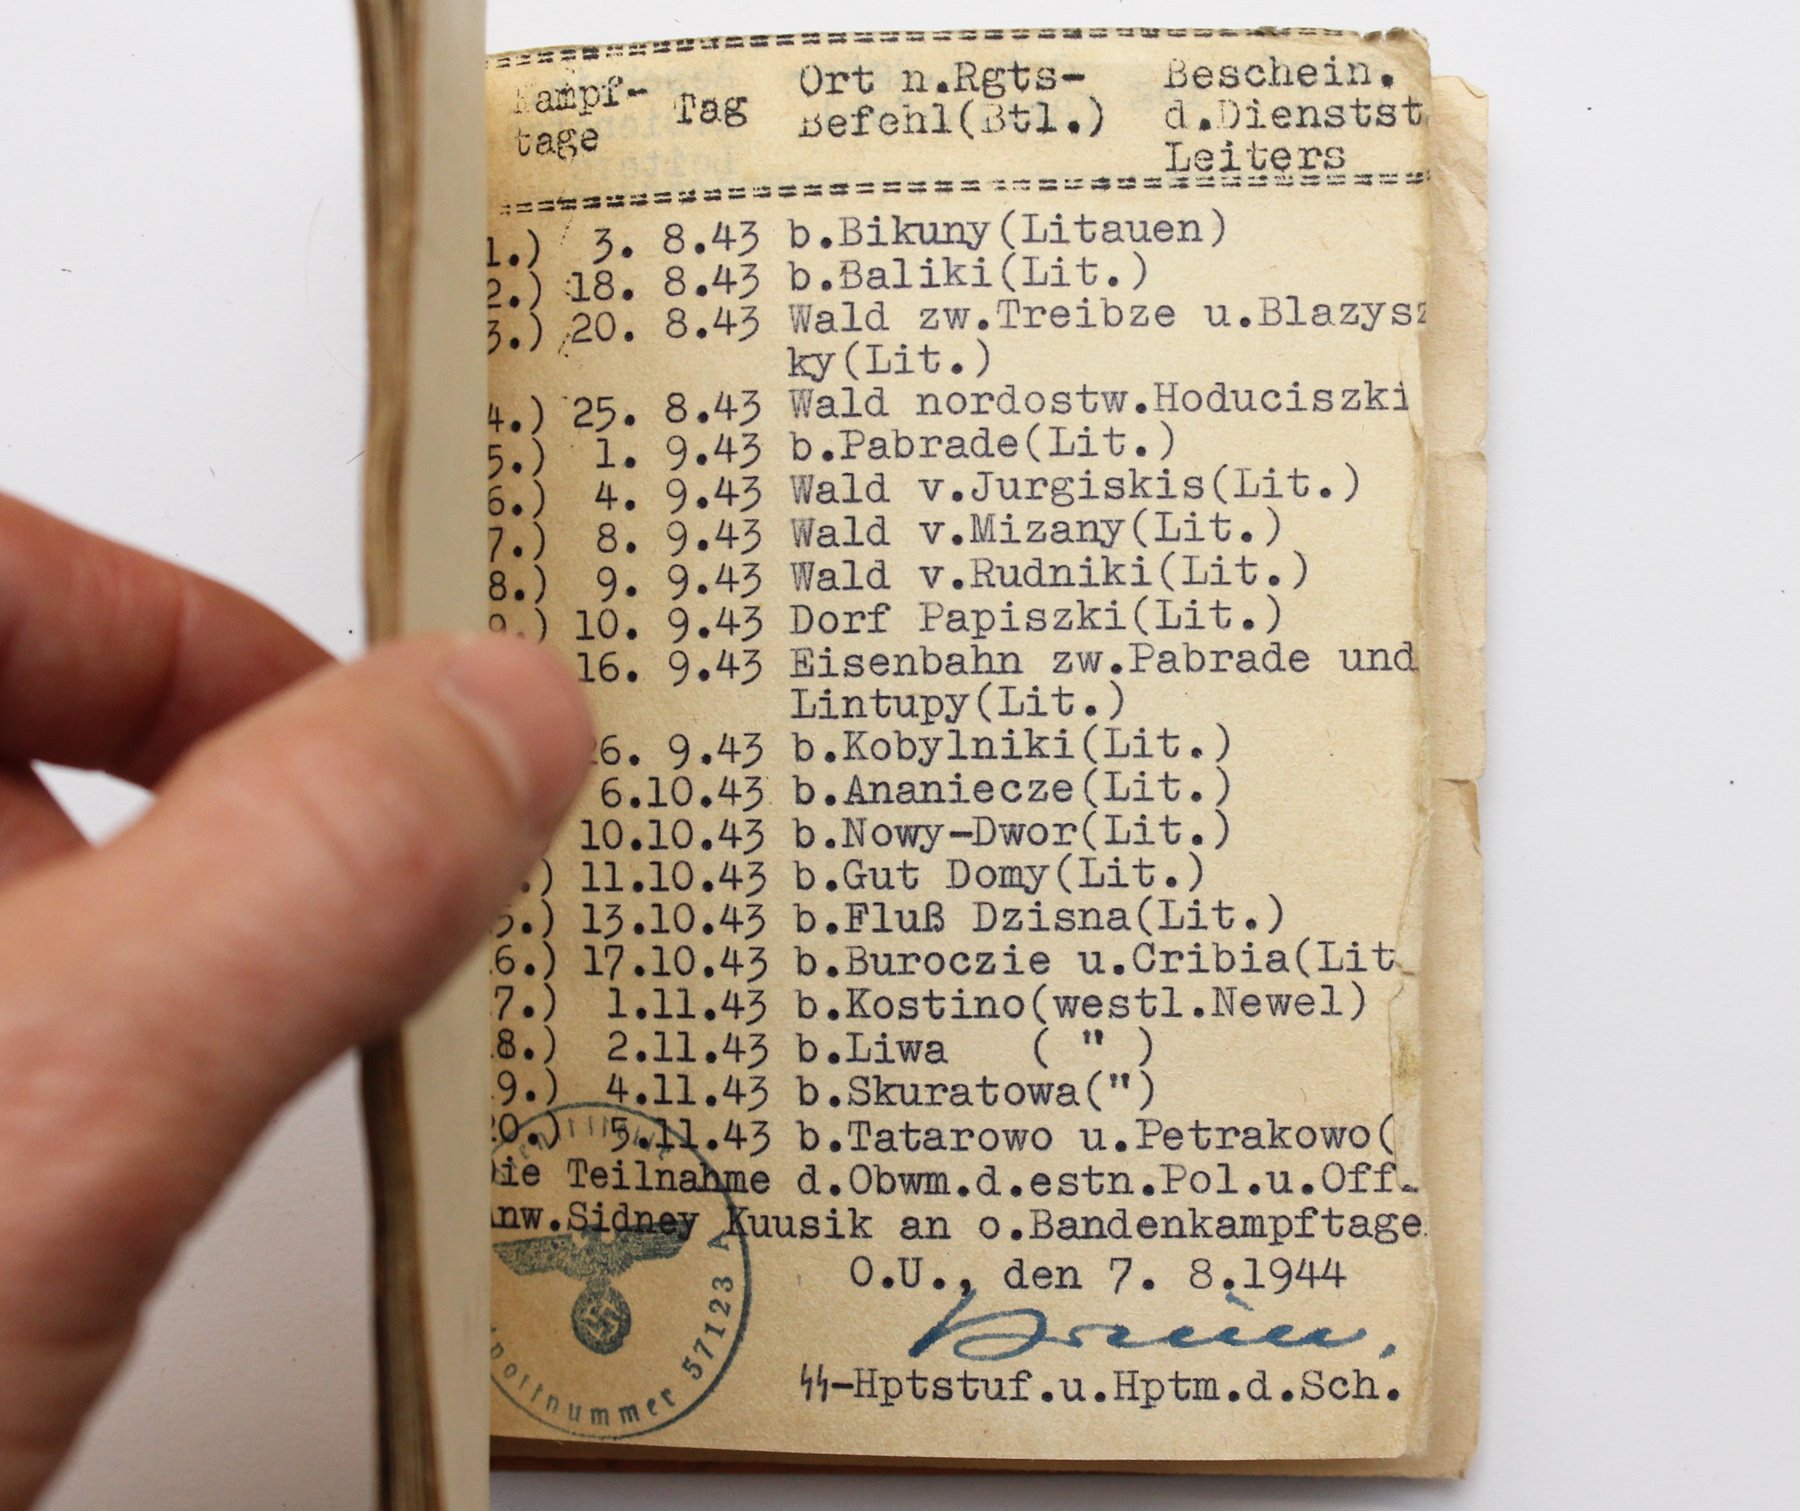 Kampf- Tag Ort n.Rgts- Beschein.
tage Befehl(Btl.) d.Dienstst.
Leiters
1.) 3. 8.43 b.Bikuny(Litauen)
2.) 18. 8.43 b.Baliki(Lit.)
3.) 20. 8.43 Wald zw.Treibze u.Blazysz
ky(Lit.)
4.) 25. 8.43 Wald nordostw.Hoduciszki
5.) 1. 9.43 b.Pabrade(Lit.)
6.) 4. 9.43 Wald v.Jurgiskis(Lit.)
7.) 8. 9.43 Wald v.Mizany(Lit.)
8.) 9. 9.43 Wald v.Rudniki(Lit.)
9.) 10. 9.43 Dorf Papiszki(Lit.)
16. 9.43 Eisenbahn zw.Pabrade und
Lintupy(Lit.)
26. 9.43 b.Kobylniki(Lit.)
6.10.43 b.Ananiecze(Lit.)
10.10.43 b.Nowy-Dwor(Lit.)
.) 11.10.43 b.Gut Domy(Lit.)
5.) 13.10.43 b.Fluß Dzisna(Lit.)
6.) 17.10.43 b.Buroczie u.Cribia(Lit.
7.) 1.11.43 b.Kostino(westl.Newel)
8.) 2.11.43 b.Liwa ( " )
9.) 4.11.43 b.Skuratowa(")
20.) 5.11.43 b.Tatarowo u.Petrakowo(
Die Teilnahme d.Obwm.d.estn.Pol.u.Off.
Anw.Sidney Kuusik an o.Bandenkampftage
O.U., den 7. 8.1944
ᛋᛋ-Hptstuf.u.Hptm.d.Sch.
postnummer 57123 A